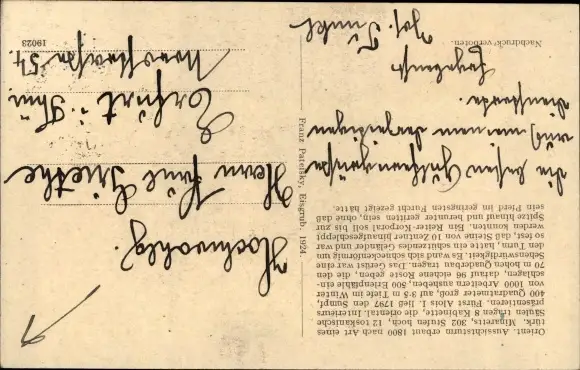 Orient. Aussichtsturm erbaut 1800 nach Art eines
türk. Minaretts, 302 Stufen hoch, 12 toskanische
Säulen tragen 8 Kabinette, die oriental. Interieurs
präsentieren. Fürst Alois I. ließ 1797 den Sumpf,
400 Quadratmeter groß, auf 3·5 m Tiefe im Winter
von 1000 Arbeitern ausheben, 500 Erlenpfähle ein-
schlagen, darauf 96 eichene Roste geben, die den
70 m hohen Quaderbau tragen. Das Gerüst war eine
Sehenswürdigkeit. Es wand sich schneckenförmig um
den Turm, hatte ein schützendes Geländer und war
so fest, daß Steine von 10 Zentner hinaufgeschleppt
werden konnten. Ein Reiter-Korporal soll bis zur
Spitze hinauf und herunter geritten sein, ohne daß
sein Pferd im geringsten Furcht gezeigt hätte.
die besten Glückwünsche
und
Ergebenst
Jos.
Nachdruck verboten.
Franz Patelsky, Eisgrub. 1924.
Hochwohlg.
Herrn Paul Griethe
Erfurt i. Thü.
54.
19023